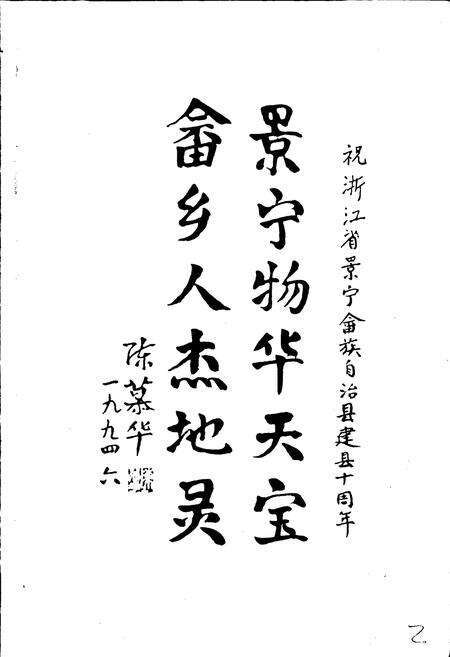 祝浙江省景宁畲族自治县建县十周年
景宁物华天宝
畲乡人杰地灵
陈慕华
一九九四六
乙